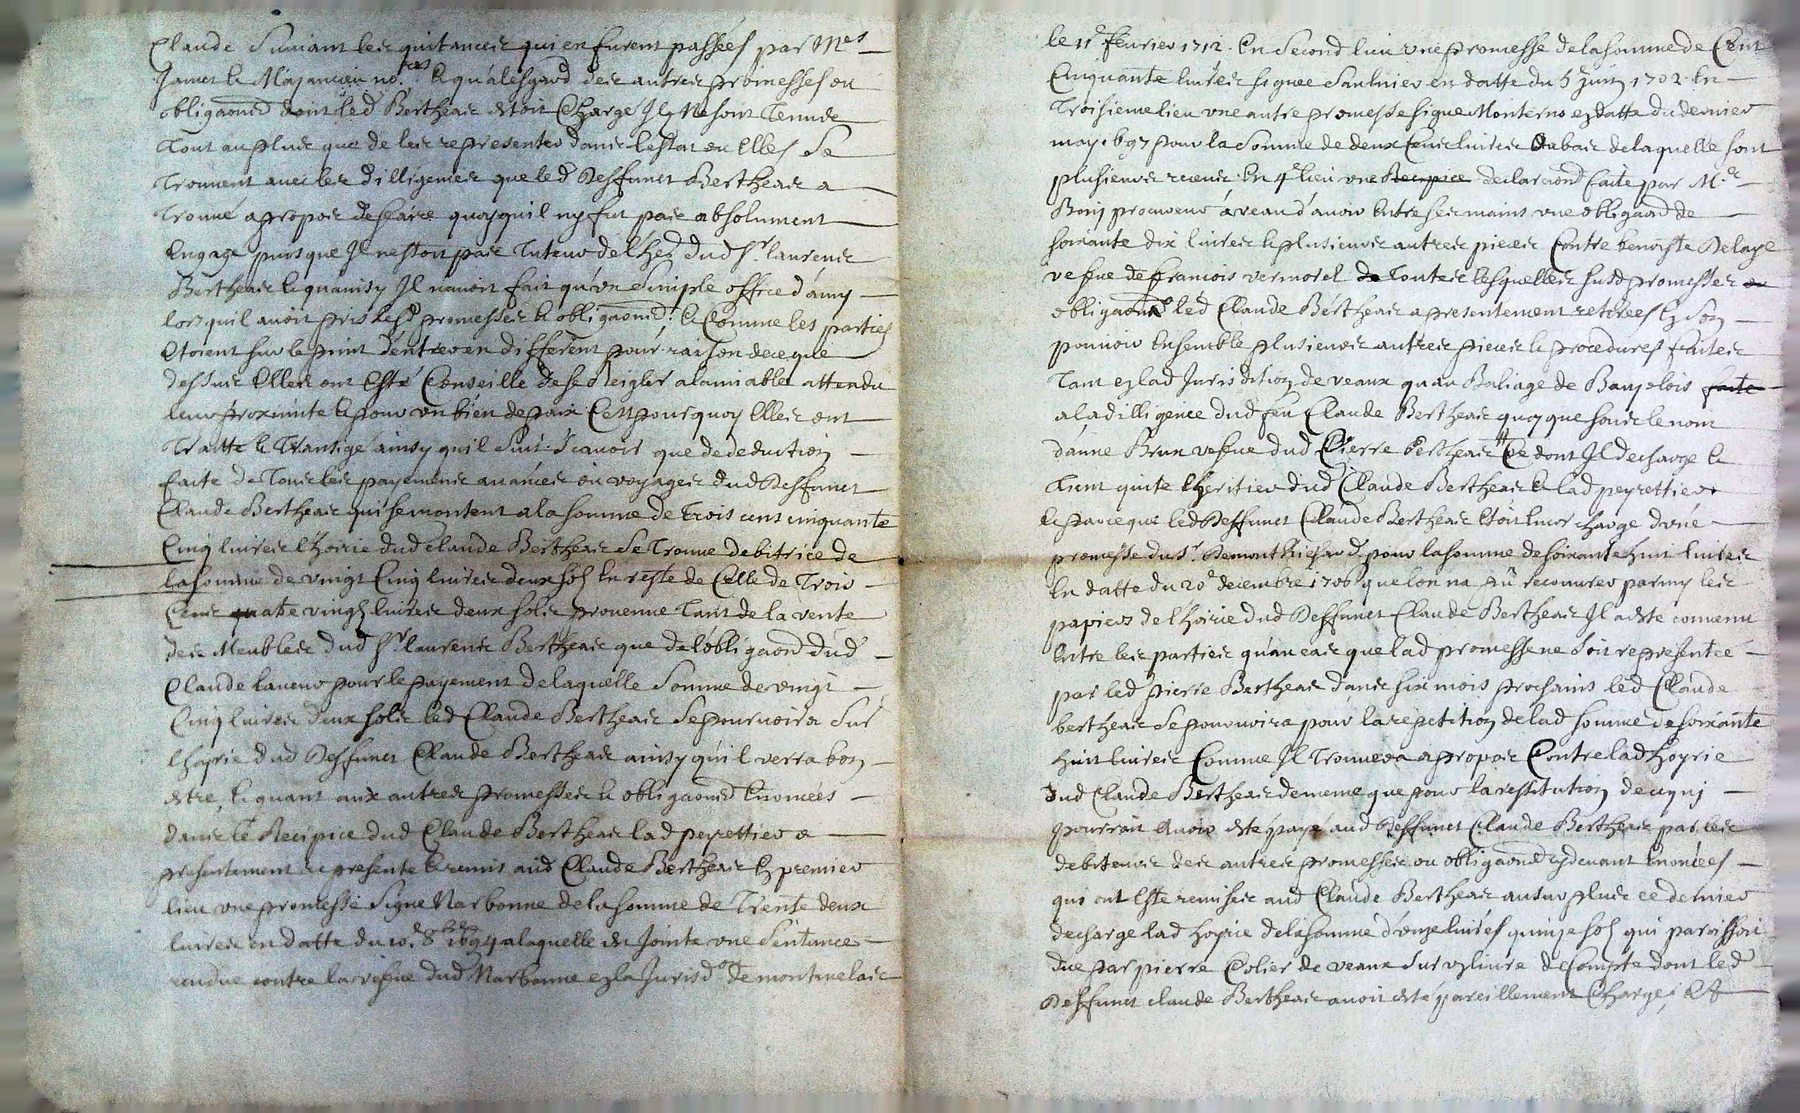 Claude Suivant les quitances qui en furent passées par Mes
Janet & Majancieu no.res & qu'alesgard des autres promesses ou
obligaons dont led Bertheas estoit Charge Ils ne sont Tenus
Tout au plus que de les representer dans lestat ou Elles se
Trouvent avec les dilligences que led deffunct Bertheas a
Trouvé apropos de faire quoyquil ny fut pas absolument
Engagé puisque Il nestoit pas Tuteur de l'her dud Sr laurens
Bertheas & quainsy Il navoit fait qu'un Simple office d'amy
lorsquil avoit pris lesd promesses & obligaons, & Comme les parties
Etoient sur le point d'entrer en different pour raison de ce que
dessus Elles ont Esté Conseillé de se Reigler alamiable attendu
leur proximité & pour un bien de paix Cest pourquoy Elles ont
Traitté & Transigé ainsy quil suit. Scavoir que de deduction
faite de Tous les payemens avances ou voyages dud deffunct
Claude Bertheas qui se montent a la somme de trois cens cinquante
Cinq livres l'hoirie dud Claude Bertheas se Trouve debitrice de
la somme de vingt Cinq livres deux sols En reste de Celle de Trois
Cens quatre vingts livres deux sols provenue Tant de la vente
des Meubles dud Sr laurens Bertheas que de l'obligaon dud
Claude laveur pour le payement de laquelle Somme de vingt
Cinq livres deux sols led Claude Bertheas se pourvoira Sur
lhoyrie dud deffunct Claude Bertheas ainsy qu'il verra bon
estre, & quant aux autres promesses & obligaons Enoncées
dans le Recipice dud Claude Bertheas lad peyrettier a
presentement represente & remis aud Claude Bertheas En premier
lieu une promesse Signe Narbonne de la somme de Trente deux
livres en datte du 10.e 8bre 1694 a laquelle est Jointe une Sentance
rendue contre la vefve dud Narbonne en la Jurisd.on de montmelas
le 11e fevrier 1712. En Second lieu une promesse de la somme de Cent
Cinquante livres signee Saulnier en datte du 5 Juin 1702. En
Troisieme lieu une autre promesse signe Monterno en datte du dernier
may 1697 pour la Somme de deux Cens livres au bas de laquelle sont
plusieurs receus; En 4e lieu une Recipice declaraon faite par Me
Bonj procureur a veau d'avoir Entre ses mains une obligaon de
soixante dix livres & plusieurs autres pieces Contre benoiste Delaye
vefve de francois vermorel de Toutes lesquelles susd promesses ou
obligaons led Claude Bertheas a presentement retirées En Son
pouvoir Ensemble plusieurs autres pieces & procedures faites
Tant en lad Jurisdition de veaux quau Baliage de Baujolois faite
a la dilligence dud feu Claude Bertheas quoyque sous le nom
d'anne Brun vefve dud Pierre Bertheas Ce dont Il decharge &
Tient quite l'heritier dud Claude Bertheas & lad peyrettier
& parce que led deffunct Claude Bertheas Estoit charge d'une
promesse du Sr. pour la somme de soixante huit livres
En datte du 20e decembre 1706 que lon na pu recouvrer parmy les
papiers de l'hoirie dud deffunct Claude Bertheas Il a esté convenu
Entre les parties qu'en cas que lad promesse ne soit representée
par led pierre Bertheas dans six mois prochains led Claude
bertheas se pourvoira pour la repetition de lad somme de soixante
huit livres Comme Il Trouvera apropos Contre lad hoyrie
dud Claude Bertheas de meme que pour la restitution de ce qui
pourroit Avoir esté payé aud deffunct Claude Bertheas par les
debiteurs des autres promesses ou obligaons cydevant Enoncées
qui ont Esté remises aud Claude Bertheas au surplus ce dernier
decharge lad hoyrie de la somme d'onze livres quinze sols qui paroissoit
due par pierre Colier de veaux Sur un livre de Compte dont led
deffunct claude Bertheas avoit esté pareillement Chargé, Et